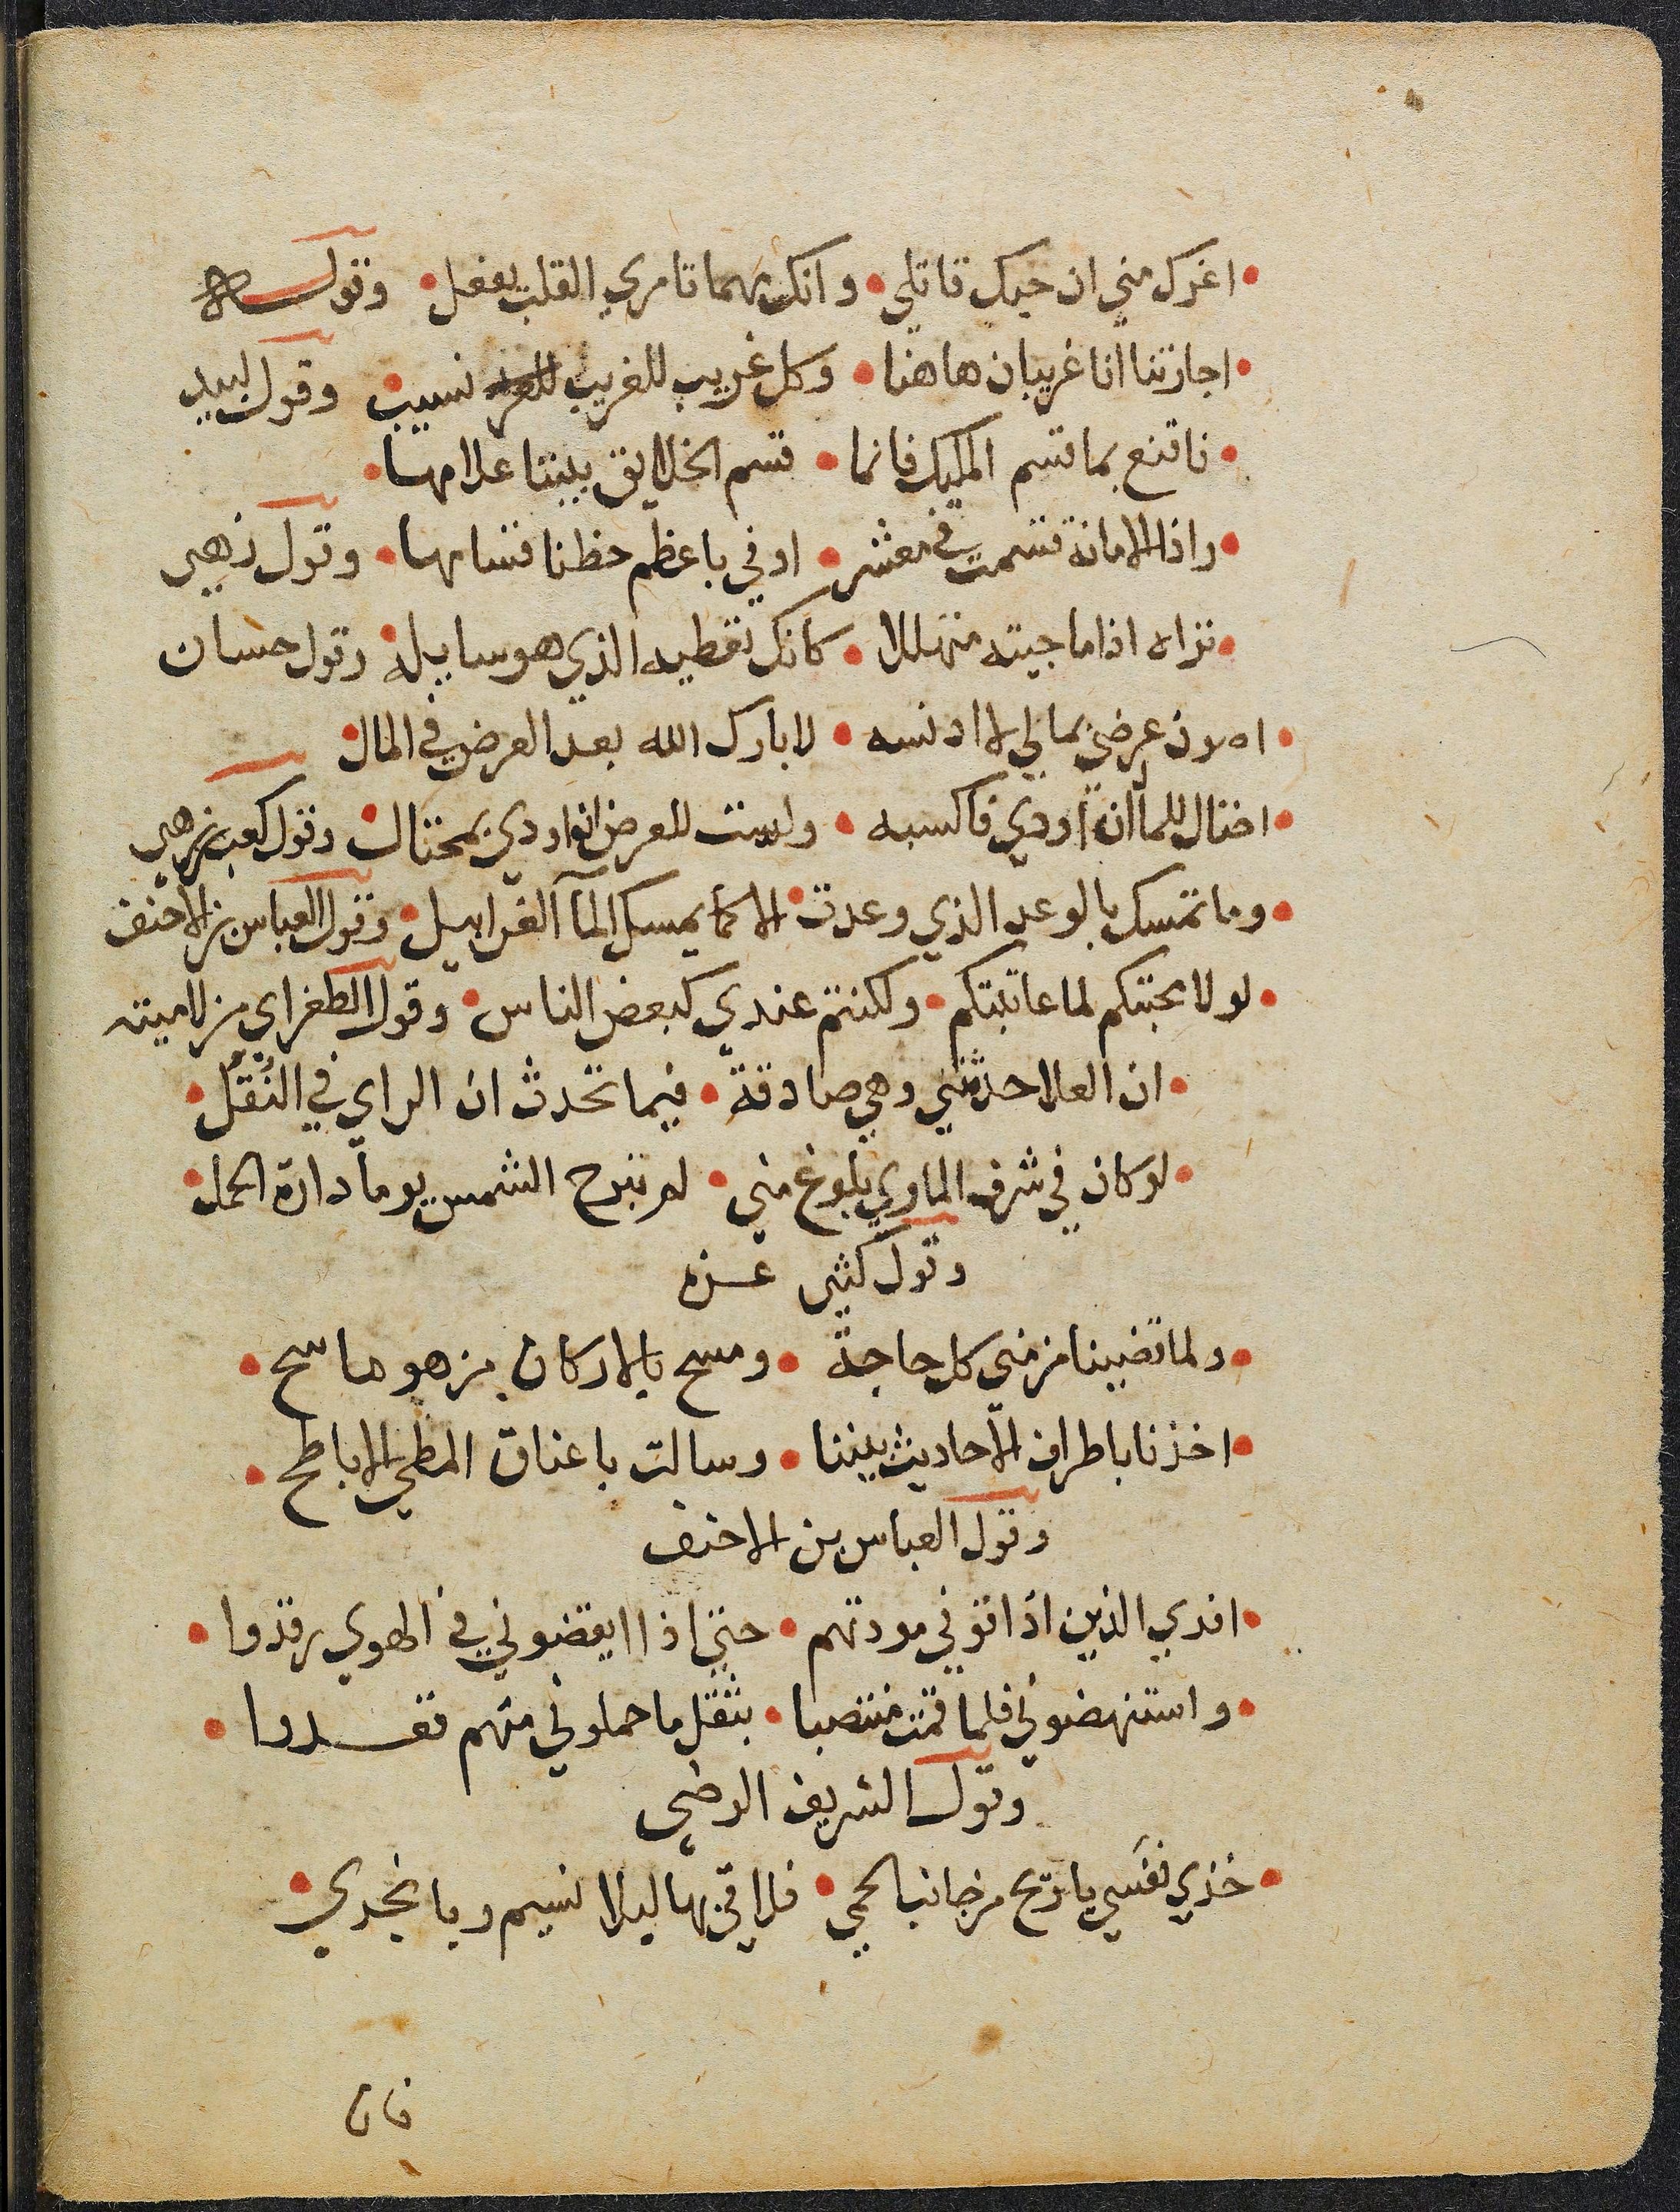 • اغرك مني ان حبك قاتلي • وانك مهما تامري القلب يفعل • وقوله
• اجارتنا انا غريبان هاهنا • وكل غريب للغريب نسيب • وقول لبيد
• فاقنع بما قسم المليك فانما • قسم الخلايق بيننا علامها •
• واذا الامانة قسمت في معشر • اوفي باعظم حظنا قسامها • وقول زهير
• تراه اذا ما جيته متهللا • كانك تعطيه الذي هو سايله • وقول حسان
• اصون عرضي بمالي لا ادنسه • لا بارك الله بعد العرض في المال •
• احتال للمال ان اودي فاكسبه • ولست للعرض ان اودي بمحتال • وقول كعب بن زهير
• وما تمسك بالوعد الذي وعدت • الا كما يمسك المآ الغرابيل • وقول العباس بن الاحنف
• لولا محبتكم لما عاتبتكم • ولكنتم عندي كبعض الناس • وقول الطغراي من لاميته
• ان العلا حدثتني وهي صادقة • فيما تحدث ان الراي في النُقُل •
• لو كان في شرف الماوي بلوغ مني • لم تبرح الشمس يوما دارة الحمل •
وقول كثير عزه
• ولما قضينا من مني كل حاجة • ومسح بالاركان من هو ماسح •
• اخذنا باطراف الاحاديث بيننا • وسالت باعناق المطي الاباطح •
وقول العباس بن الاحنف
• افدي الذين اذاقوني مودتهم • حتي اذا ايقضوني في الهوي رقدوا •
• واستنهضوني فلما قمت منتصبا • بثقل ما حملوني منهم قعدوا •
وقول الشريف الرضي
• خذي نفسي يا ريح من جانب الحمي • فلاقي بها ليلا نسيم ربا نجدي •
فان